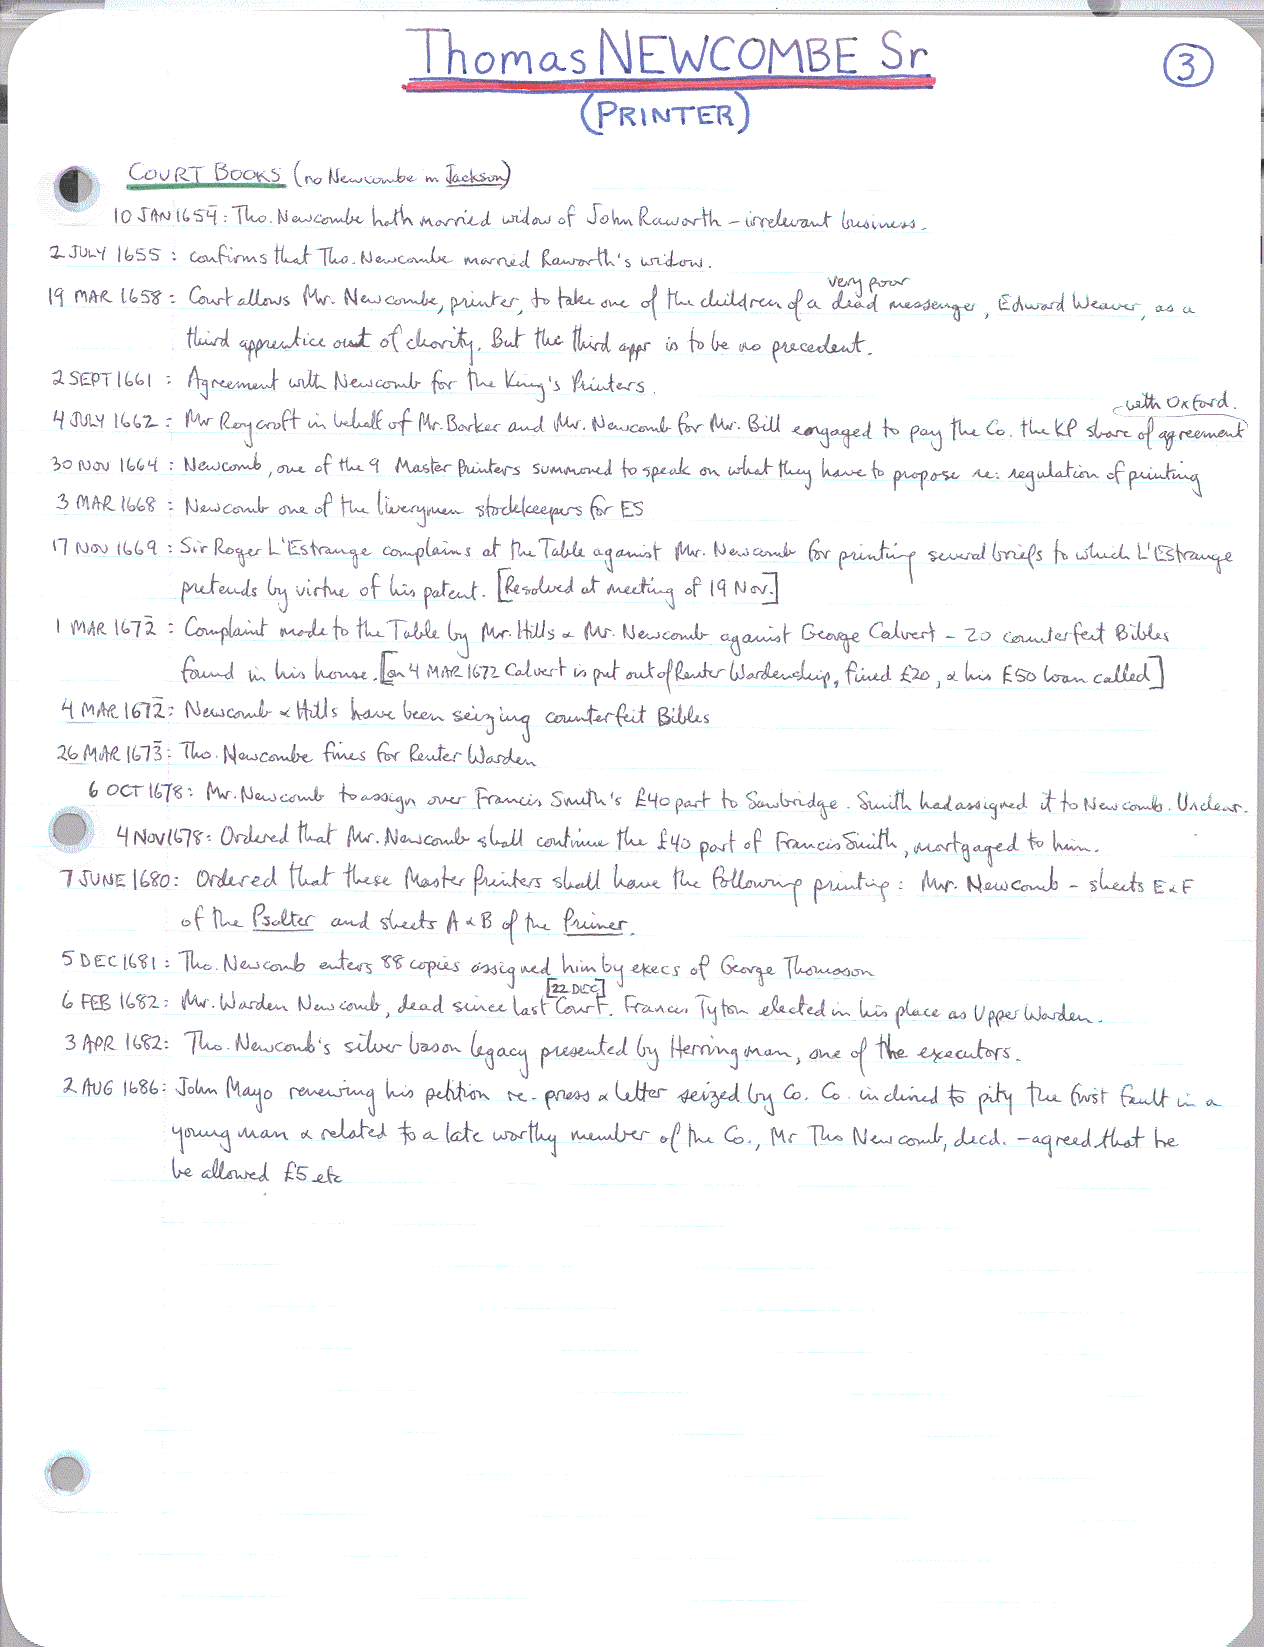 Thomas NEWCOMBE Sr
3
(PRINTER)
COURT BOOKS (no Newcombe in Jackson)
10 JAN 1654̄: Tho. Newcombe hath married widow of John Raworth – irrelevant business.
2 JULY 1655: confirms that Tho. Newcombe married Raworth's widow.
very poor
19 MAR 1658: Court allows Mr. Newcombe, printer, to take one of the children of a dead messenger, Edward Weaver, as a
third apprentice out of charity. But the third appr is to be no precedent.
2 SEPT 1661: Agreement with Newcomb for the King's Printers.
with Oxford.
4 JULY 1662: Mr Roycroft in behalf of Mr. Barker and Mr. Newcomb for Mr. Bill engaged to pay the Co. the KP share of agreement
30 NOV 1664: Newcomb, one of the 9 Master Printers summoned to speak on what they have to propose re: regulation of printing
3 MAR 1668: Newcomb one of the liverymen stockkeepers for ES
17 NOV 1669: Sir Roger L'Estrange complains at the Table against Mr. Newcomb for printing several briefs to which L'Estrange
pretends by virtue of his patent. [Resolved at meeting of 19 Nov.]
1 MAR 1672̄: Complaint made to the Table by Mr. Hills & Mr. Newcomb against George Calvert – 20 counterfeit Bibles
found in his house. [on 4 MAR 1672 Calvert is put out of Renter Wardenship, fined £20, & his £50 loan called]
4 MAR 1672̄: Newcomb & Hills have been seizing counterfeit Bibles
26 MAR 1673̄: Tho. Newcombe fines for Renter Warden
6 OCT 1678: Mr. Newcomb to assign over Francis Smith's £40 part to Sawbridge. Smith had assigned it to Newcomb. Unclear.
4 NOV 1678: Ordered that Mr. Newcomb shall continue the £40 part of Francis Smith, mortgaged to him.
7 JUNE 1680: Ordered that these Master Printers shall have the following printing: Mr. Newcomb – sheets E & F
of the Psalter and sheets A & B of the Primer.
5 DEC 1681: Tho. Newcomb enters 88 copies assigned him by execs of George Thomason
[22 DEC]
6 FEB 1682: Mr. Warden Newcomb, dead since last Court. Francis Tyton elected in his place as Upper Warden.
3 APR 1682: Tho. Newcomb's silver bason legacy presented by Herringman, one of the executors.
2 AUG 1686: John Mayo renewing his petition re. press & letter seized by Co. Co. inclined to pity the first fault in a
young man & related to a late worthy member of the Co., Mr Tho Newcomb, decd. – agreed that he
be allowed £5 etc